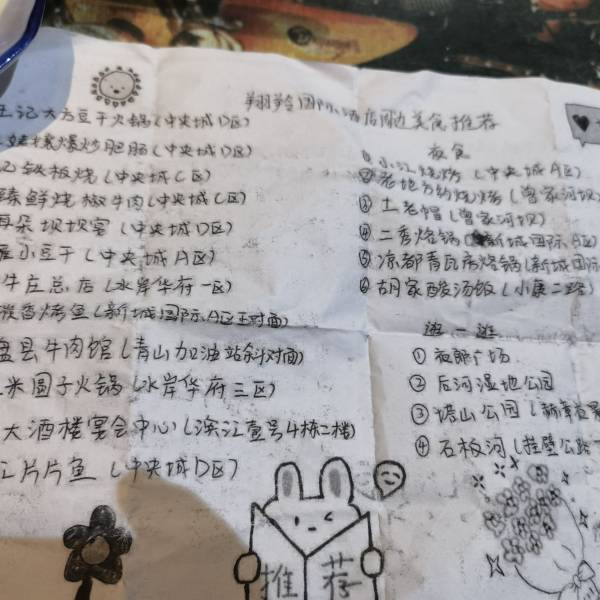 翔羚国际酒店周边美食推荐
王记大方豆干火锅(中央城D区)
爆炒肥肠(中央城D区)
记铁板烧(中央城C区)
臻鲜烧椒牛肉(中央城C区)
耳朵坝坝宴(中央城D区)
小豆干(中央城A区)
牛庄总店(水岸华府一区)
香烤鱼(新城国际A区正对面)
盘县牛肉馆(青山加油站斜对面)
米圆子火锅(水岸华府三区)
大酒楼宴会中心(滨江壹号4栋二楼)
江片片鱼(中央城D区)
夜食
①小江烧烤(中央城A区)
②老地方 烧烤(曾家河坝)
③土老帽(曾家河坝)
④二秀烙锅(新城国际A区)
⑤凉都青瓦房烙锅(新城国际
⑥胡家酸汤饭(小康二路)
逛一逛
①夜郎广场
②后河湿地公园
③塔山公园(
④石板河(挂壁公路
推荐